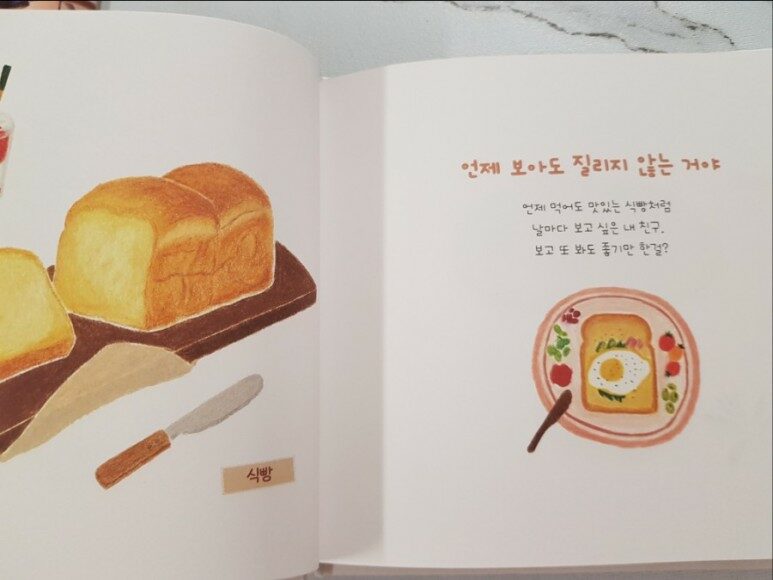 식빵
언제 보아도 질리지 않는 거야
언제 먹어도 맛있는 식빵처럼
날마다 보고 싶은 내 친구.
보고 또 봐도 좋기만 한걸?